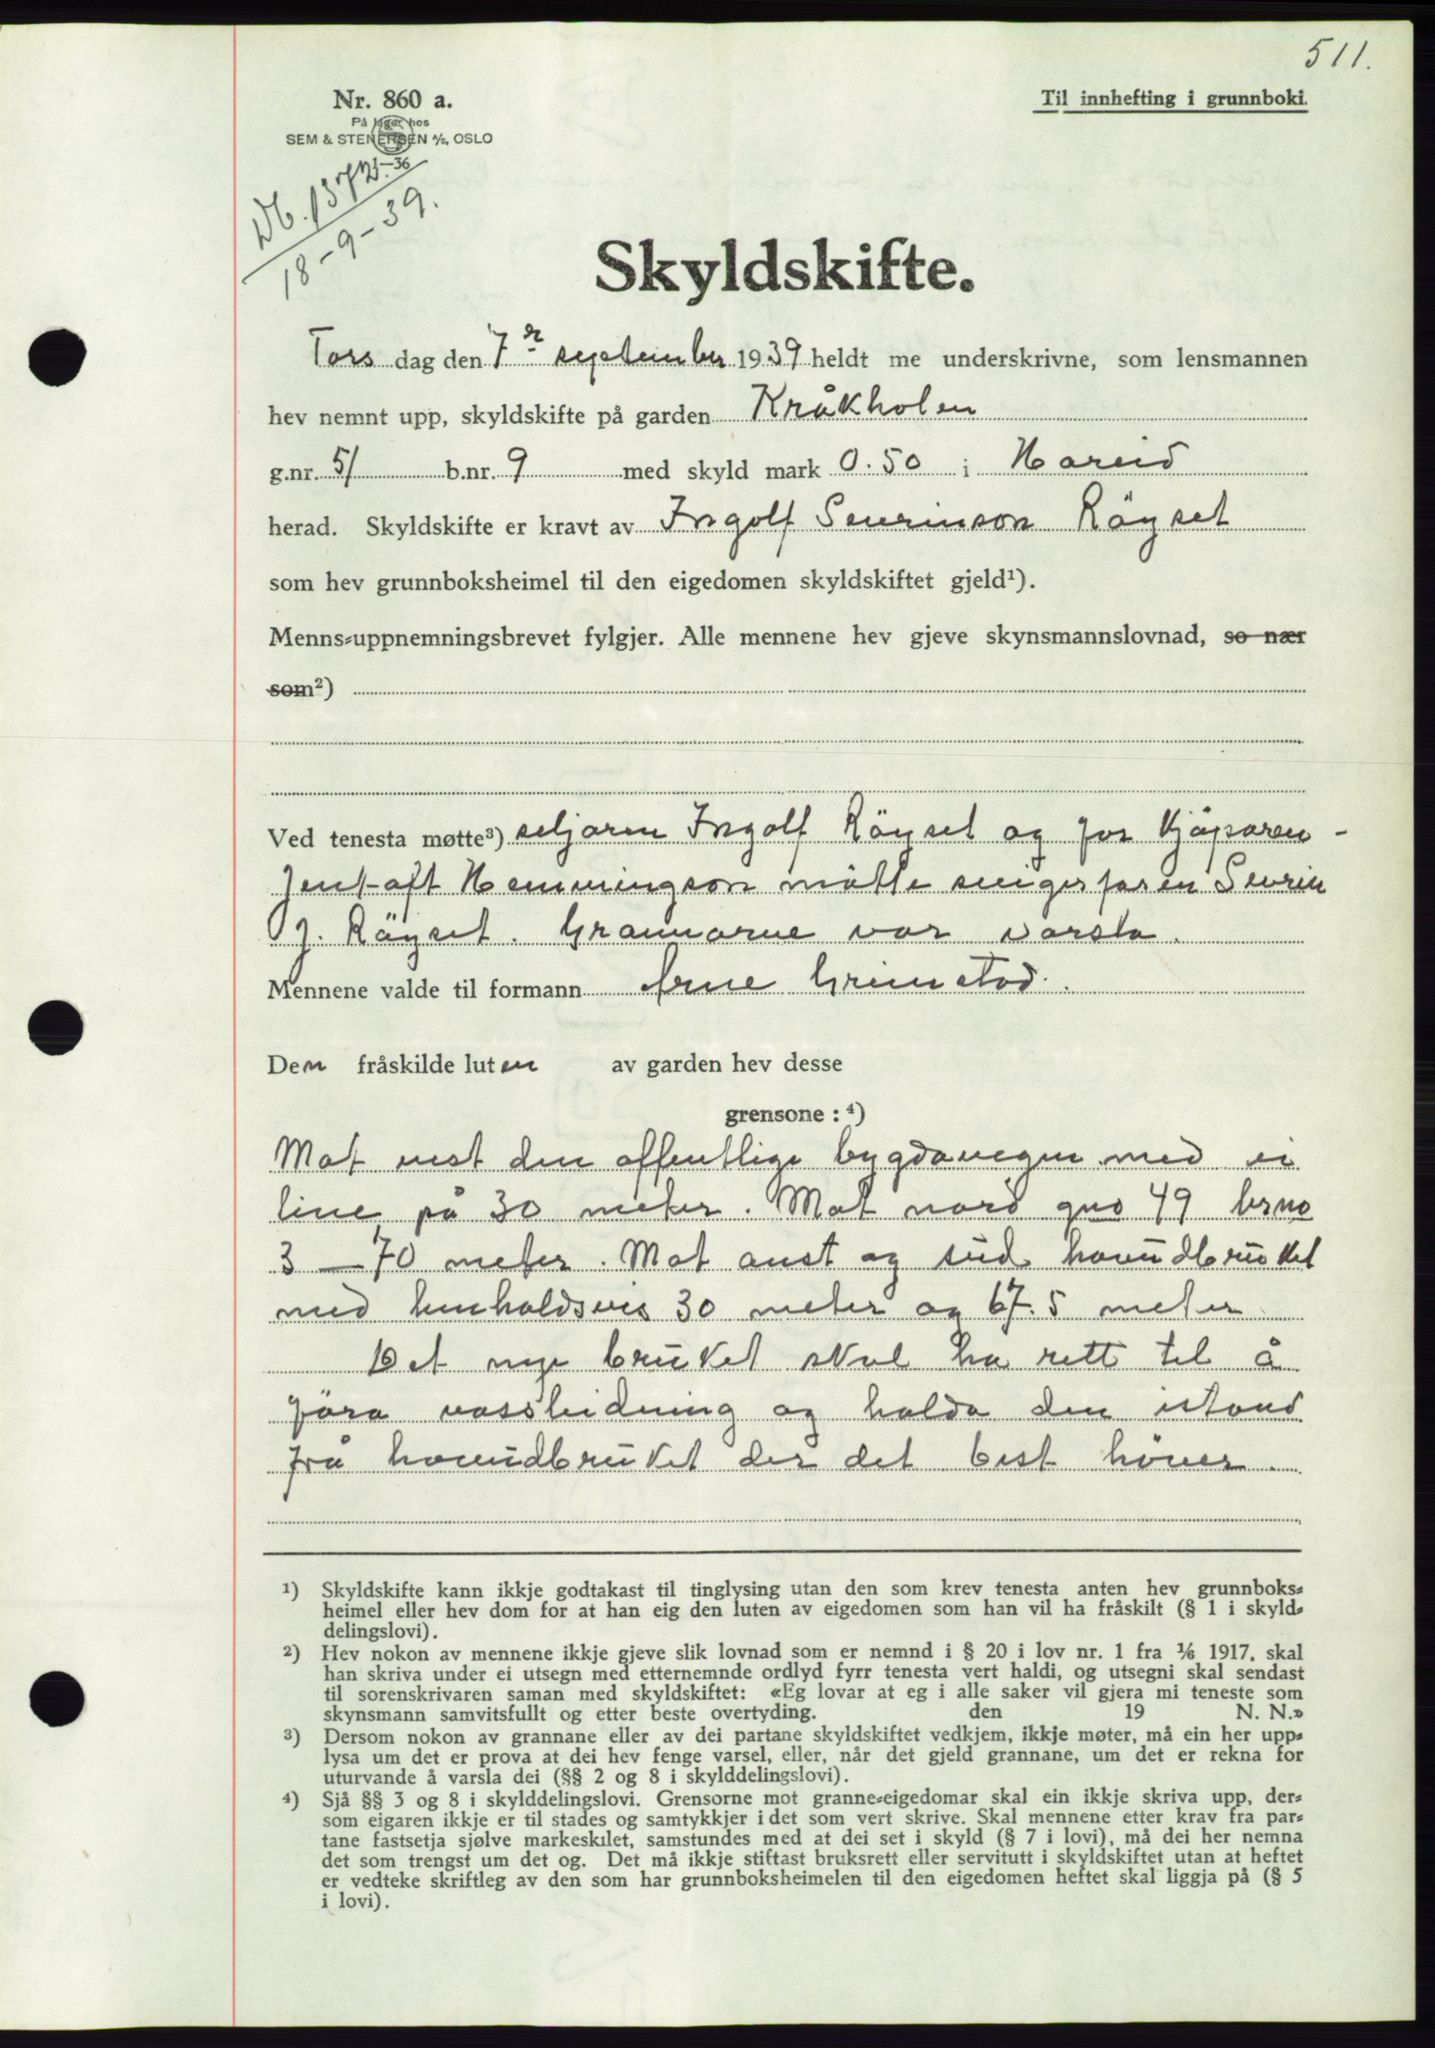 511.
Nr. 860 a.
Til innhefting i grunnboki.
På lager hos
SEM & STENERSEN A/S, OSLO
Db. 1372 -36
18-9-39.
Skyldskifte.
Tors dag den 7 september 1939 heldt me underskrivne, som lensmannen
hev nemnt upp, skyldskifte på garden Kråkholen
g.nr. 51 b.nr. 9 med skyld mark 0.50 i Hareid
herad. Skyldskifte er kravt av Ingolf Sevrinson Röyset
som hev grunnboksheimel til den eigedomen skyldskiftet gjeld¹).
Menns-uppnemningsbrevet fylgjer. Alle mennene hev gjeve skynsmannslovnad, so nær
som²)
Ved tenesta møtte³) seljaren Ingolf Röyset og for kjöparen
Jentoft Hemmingson mötte Sevrin
J. Röyset. Grannarne var varsla.
Mennene valde til formann Arne Grimstad.
Den fråskilde luten av garden hev desse
grensone : ⁴)
Mot vest den offentlige bygdavegen med ei
line på 30 meter. Mot nord gno 49 brno
3 — 70 meter. Mot aust og süd hovüdbrüket
med henholdsvis 30 meter og 67.5 meter
Det nye brüket skal ha rett til å
föra vassleidning og halda den istand
frå hovüdbrüket der det best höver.
¹) Skyldskifte kann ikkje godtakast til tinglysing utan den som krev tenesta anten hev grunnboks-
heimel eller hev dom for at han eig den luten av eigedomen som han vil ha fråskilt (§ 1 i skyld-
delingslovi).
²) Hev nokon av mennene ikkje gjeve slik lovnad som er nemnd i § 20 i lov nr. 1 fra 1/6 1917, skal
han skriva under ei utsegn med etternemnde ordlyd fyrr tenesta vert haldi, og utsegni skal sendast
til sorenskrivaren saman med skyldskiftet: «Eg lovar at eg i alle saker vil gjera mi teneste som
skynsmann samvitsfullt og etter beste overtyding. den 19 N. N.»
³) Dersom nokon av grannane eller av dei partane skyldskiftet vedkjem, ikkje møter, må ein her upp-
lysa um det er prova at dei hev fenge varsel, eller, når det gjeld grannane, um det er rekna for
uturvande å varsla dei (§§ 2 og 8 i skylddelingslovi).
⁴) Sjå §§ 3 og 8 i skylddelingslovi. Grensorne mot granne-eigedomar skal ein ikkje skriva upp, der-
som eigaren ikkje er til stades og samtykkjer i det som vert skrive. Skal mennene etter krav fra par-
tane fastsetja sjølve markeskilet, samstundes med at dei set i skyld (§ 7 i lovi), må dei her nemna
det som trengst um det og. Det må ikkje stiftast bruksrett eller servitutt i skyldskiftet utan at heftet
er vedteke skriftleg av den som har grunnboksheimelen til den eigedomen heftet skal liggja på (§ 5
i lovi).